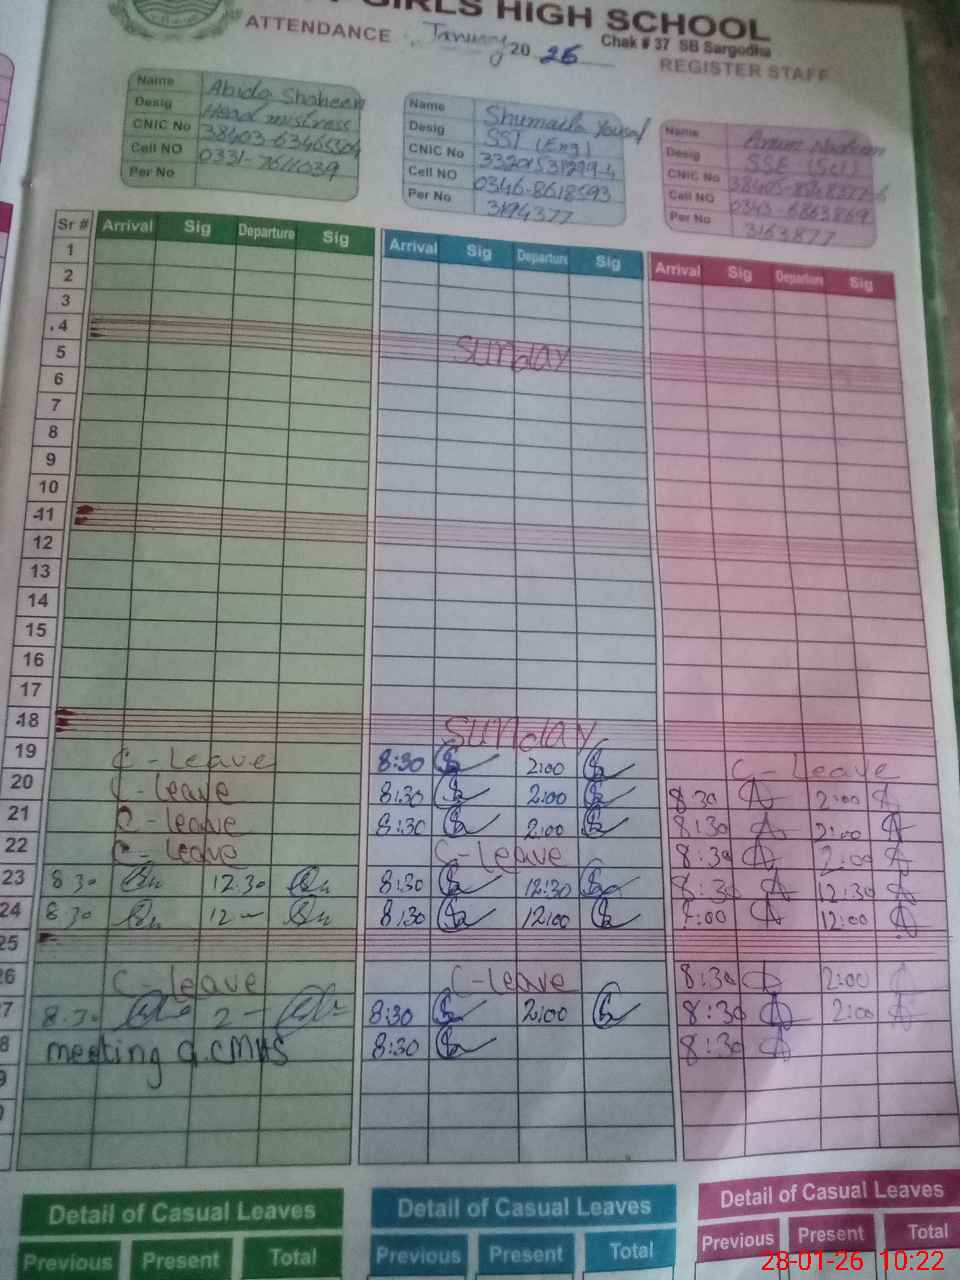 GIRLS HIGH SCHOOL
ATTENDANCE January 20 26 Chak # 37 SB Sargodha
REGISTER STAFF
Name Abida Shaheen
Desig Head mistress
CNIC No
Cell NO 0331-7611039
Per No
Name Shumaila Yousaf
Desig SST (Eng)
CNIC No
Cell NO 0346-8618593
Per No 3194377
Name
Desig SSE (Sci)
CNIC No
Cell NO 0343-6863869
Per No 3163877
Sr # Arrival Sig Departure Sig Arrival Sig Departure Sig Arrival Sig Departure Sig
1
2
3
4
5 Sunday
6
7
8
9
10
11
12
13
14
15
16
17
18 Sunday
19 C-Leave 8:30 2:00 C-Leave
20 C-Leave 8:30 2:00 8:30 2:00
21 C-leave 8:30 2:00 8:30 2:00
22 C-leave C-leave 8:30 2:00
23 8:30 12:30 8:30 12:30 8:30 12:30
24 8:30 12 - 8:30 12:00 12:00
25
26 C-leave C-leave 8:30 2:00
7 8:30 2 - 8:30 2:00 8:30 2:00
8 meeting 8:30 8:30
9
Detail of Casual Leaves Detail of Casual Leaves Detail of Casual Leaves
Previous Present Total Previous Present Total Previous Present Total
28-01-26 10:22